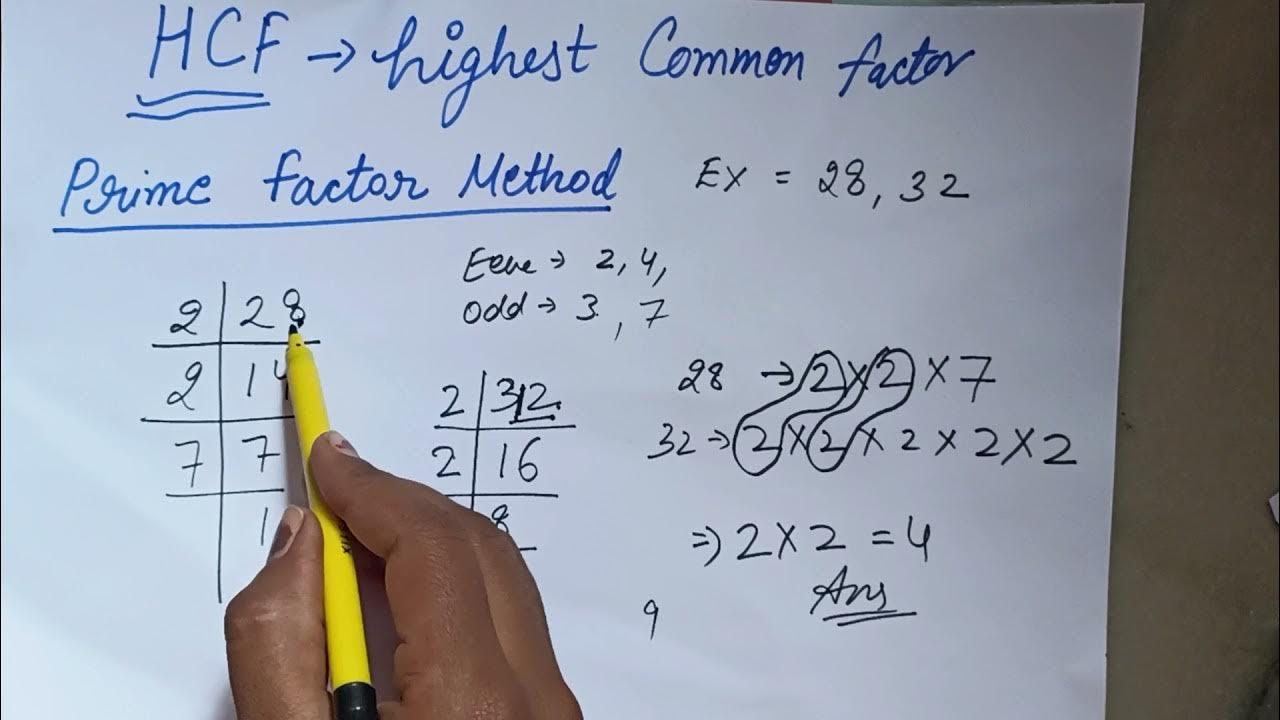 HCF → highest Common factor
Prime factor Method
Ex = 28, 32
Eeve → 2, 4,
odd → 3, 7
2 | 28
2 | 14
7 | 7
1
2 | 32
2 | 16
8
28 → 2 × 2 × 7
32 → 2 × 2 × 2 × 2 × 2
⇒ 2 × 2 = 4
Ans
9